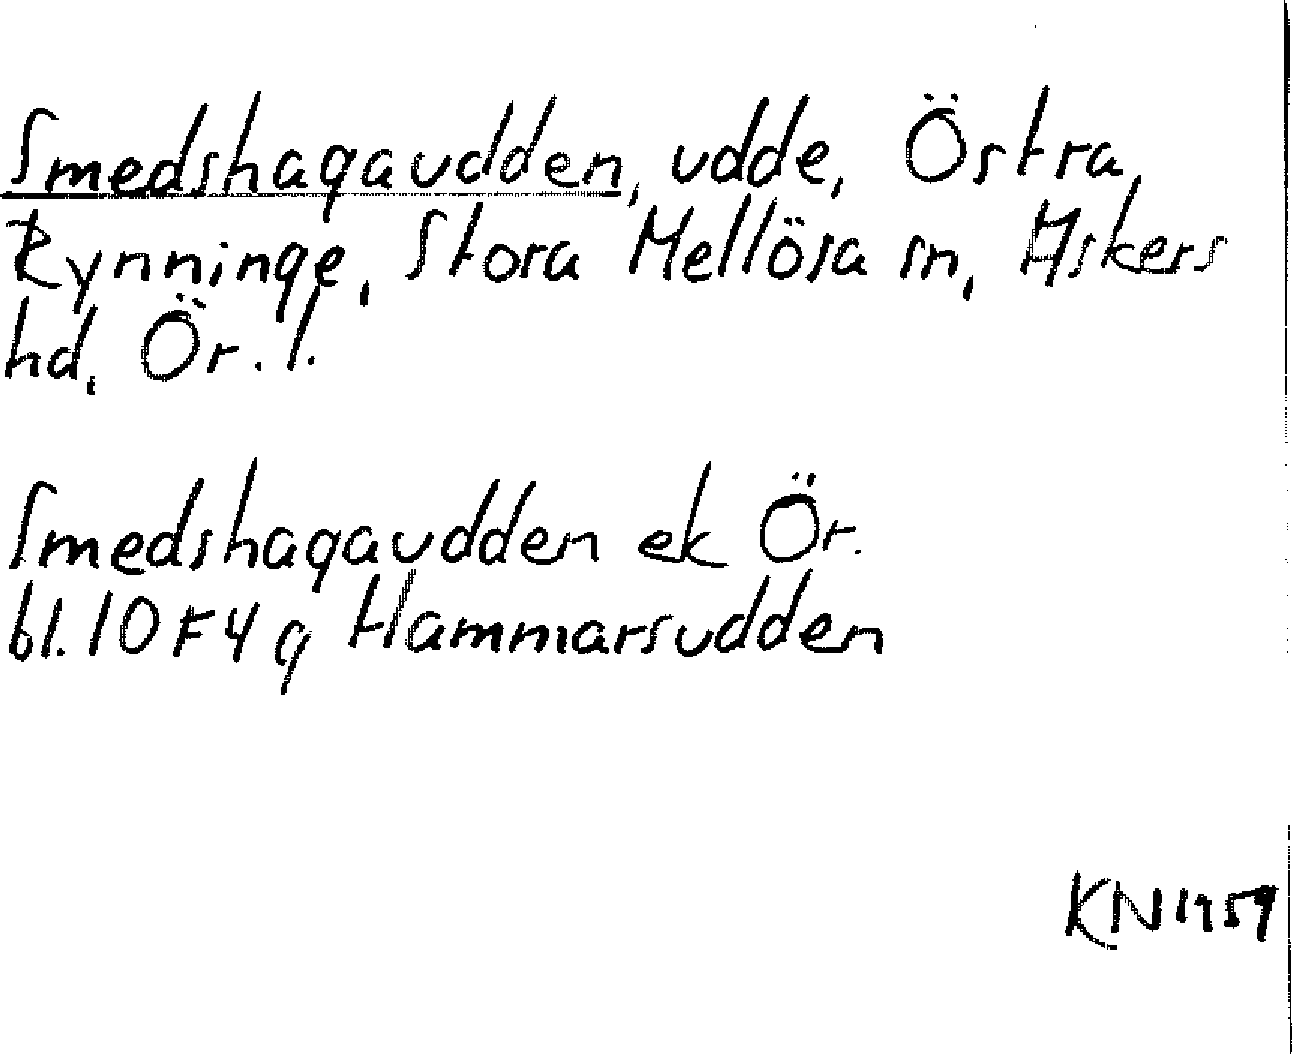 Smedshagaudden, udde, Östra
Rynninge, Stora Mellösa sn, Askers
hd, Ör. l.
Smedshagaudden ek Ör.
bl. 10F4g Hammarsudden
KN 1959